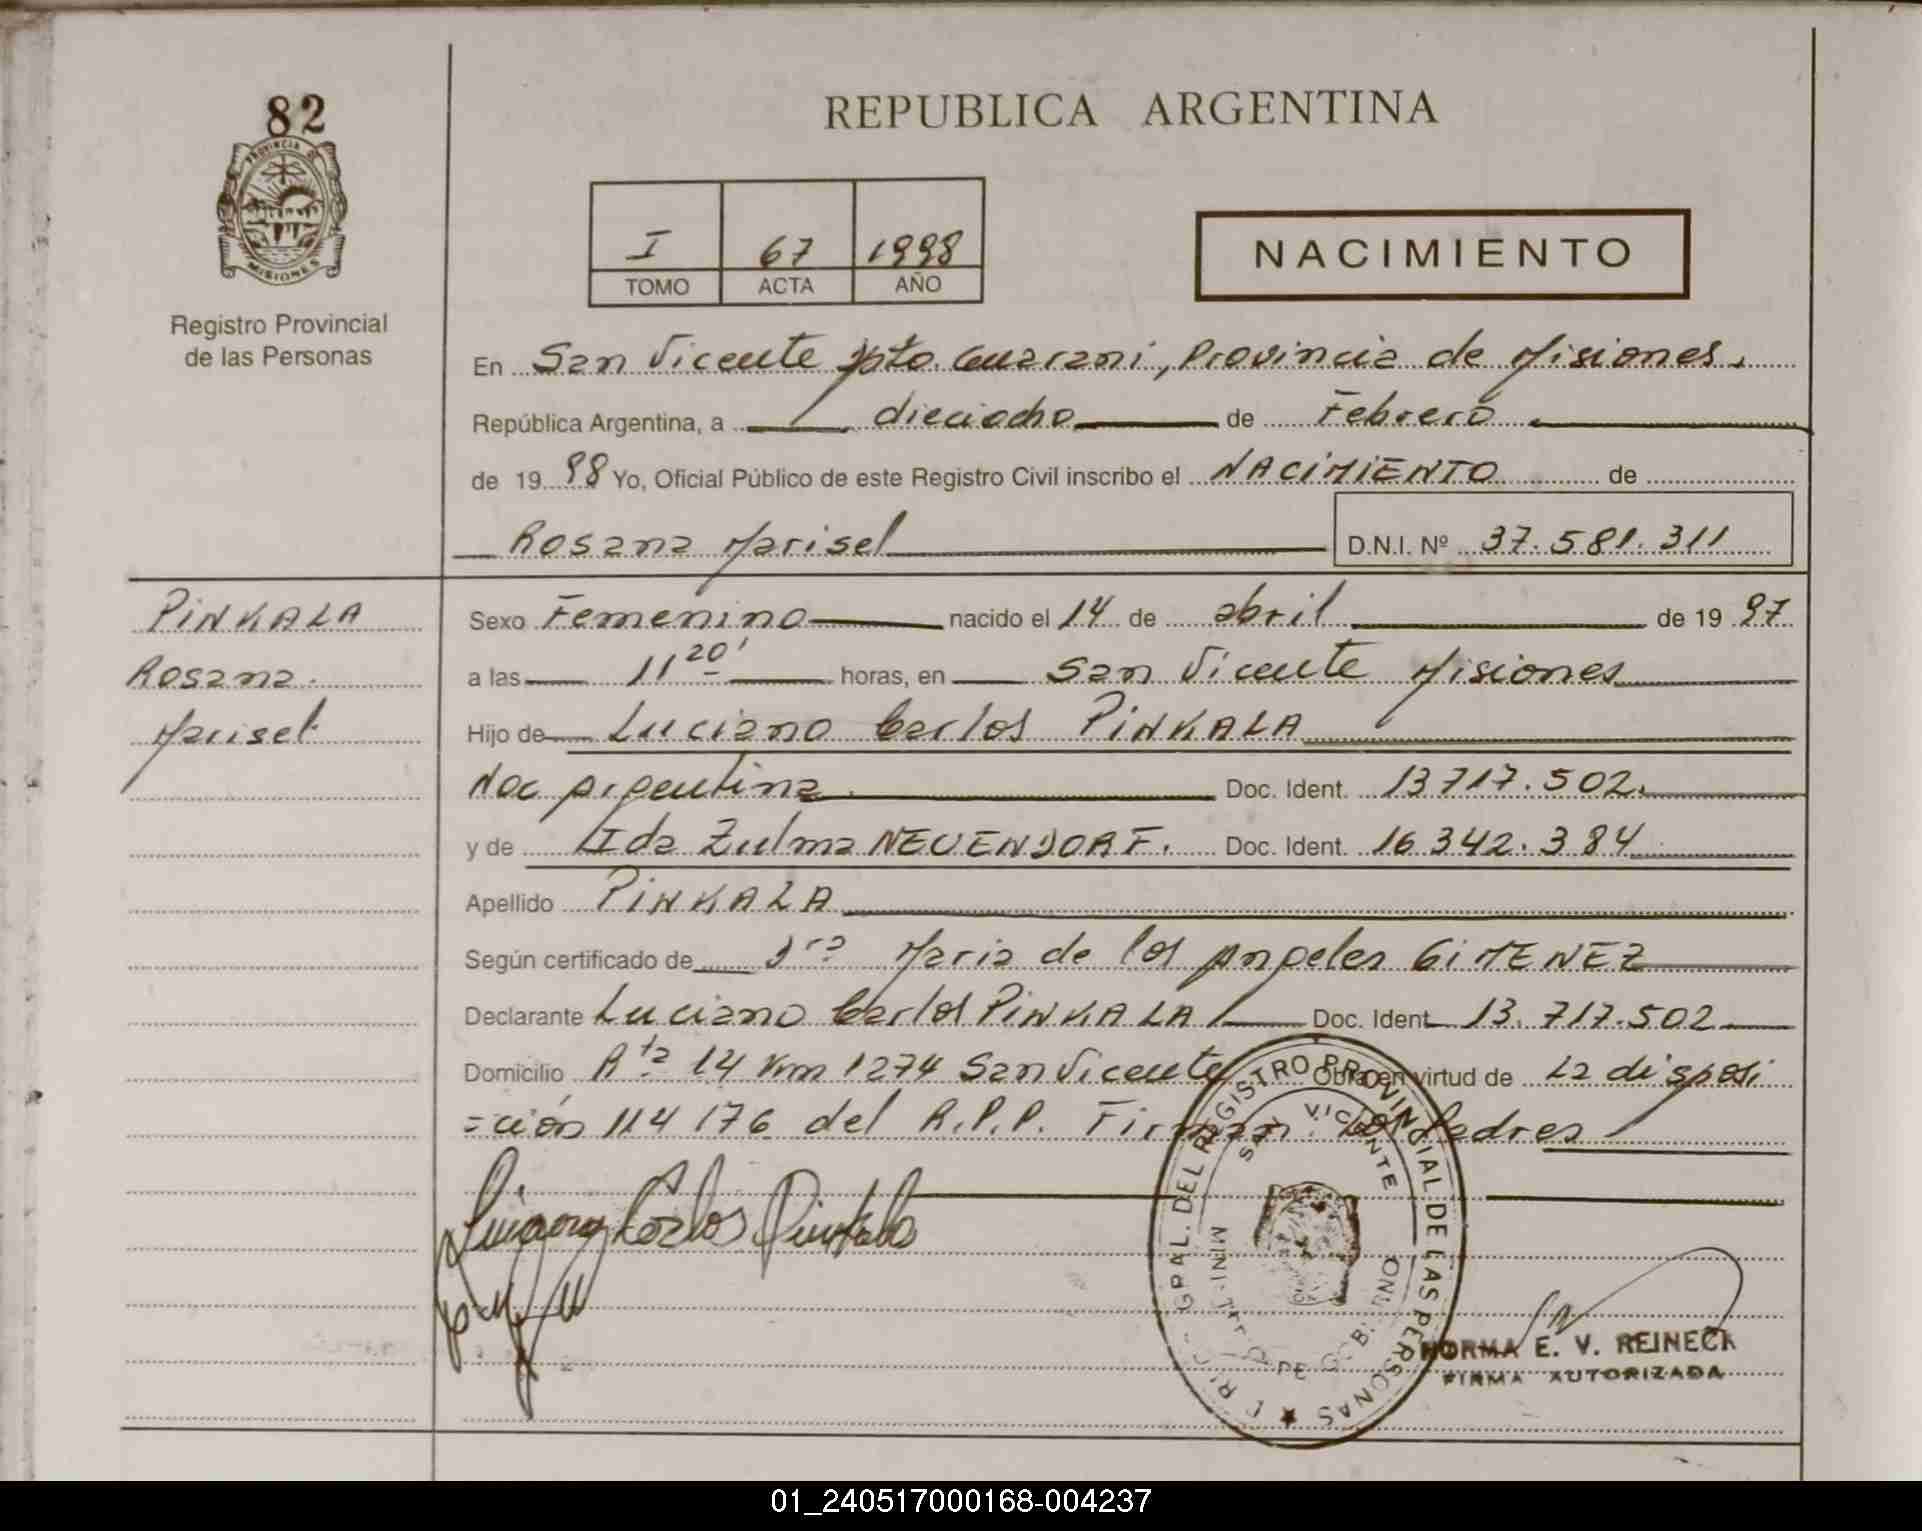 82
PROVINCIA DE
MISIONES
Registro Provincial
de las Personas
REPUBLICA ARGENTINA
I 67 1998
TOMO ACTA AÑO
NACIMIENTO
En San Vicente Dpto. Guarani, Provincia de Misiones.
República Argentina, a dieciocho de Febrero
de 1998 Yo, Oficial Público de este Registro Civil inscribo el NACIMIENTO de
Rosana Marisel D.N.I. Nº 37.581.311
PINKALA
Rosana
Marisel
Sexo Femenino nacido el 14 de abril de 1997
a las 11 20' horas, en San Vicente Misiones
Hijo de Luciano Carlos PINKALA
Nac Argentina Doc. Ident. 13717.502.
y de Ida Zulma NEUENDORF. Doc. Ident. 16 342.384
Apellido PINKALA
Según certificado de Dra Maria de los Angeles GIMENEZ
Declarante Luciano Carlos PINKALA Doc. Ident 13.717.502
Domicilio Rta 14 Km 1274 San Vicente Obra en virtud de La disposi
=ción 114176 del R.P.P. Firman: Los Padres
Luciano Carlos Pinkala
GRAL. DEL REGISTRO PROVINCIAL DE LAS PERSONAS
SAN VICENTE
NORMA E. V. REINECK
FIRMA AUTORIZADA
01_240517000168-004237